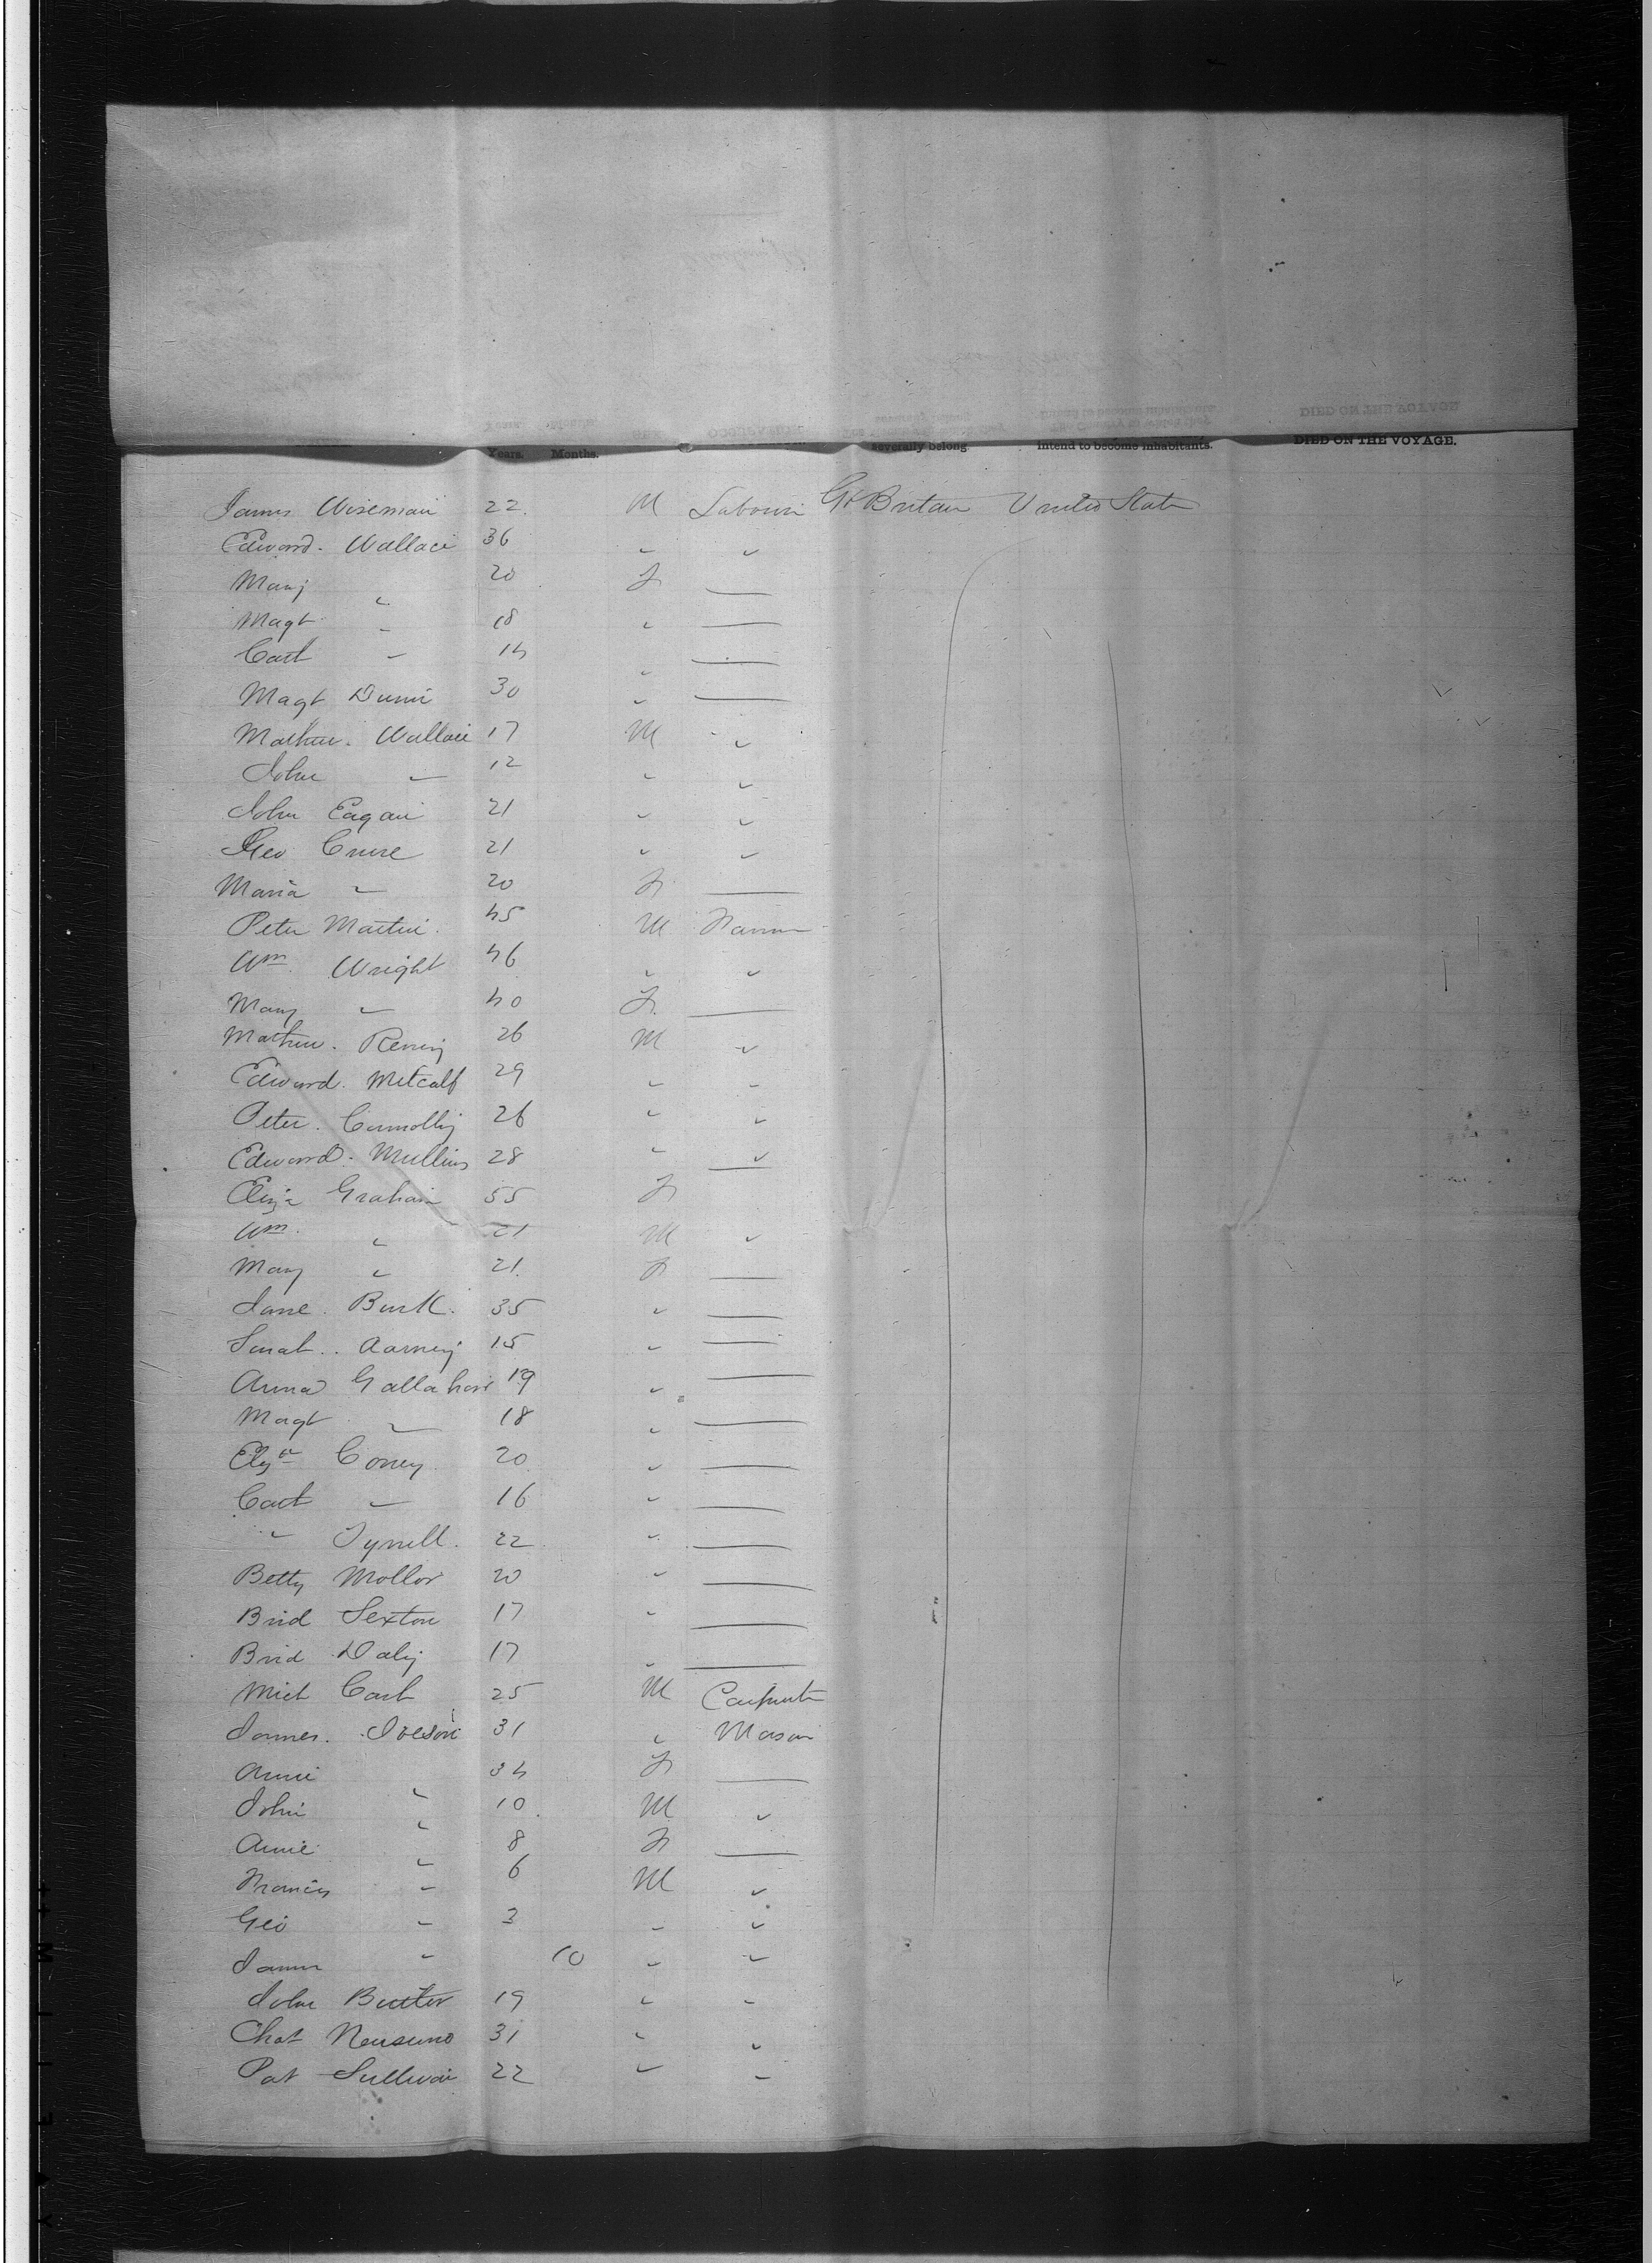 Years. Months. severally belong. intend to become inhabitants. DIED ON THE VOYAGE.
James Wiseman 22. M Labourer Gt Britain United State
Edward. Wallace 36 " "
Mary " 20 F —
Magt " 18 " —
Cath " 14 " —
Magt Dunn 30 " —
Mathew. Wallace 17 M "
John " 12 " "
John Eagan 21 " "
Geo Cruse 21 " "
Maria " 20 F —
Peter Martin. 45 M Farmer
Wm. Wright 46 " "
Mary " 40 F. —
Mathew. 26 M "
Edward. Metcalf 29 " "
Peter. Connolly 26 " "
Edward. Mullins 28 " "
Eliza Graham 55 F
Wm. " 21 M "
Mary " 21. F —
Jane. Burk. 35 " —
Sarah.. 15 " —
Anna Gallahan 19 " —
Magt " 18 " —
Elyza Coney 20 " —
Cath " 16 " —
" Tyrrell. 22 " —
Betty Mollor 20 " —
Brid Sexton 17 " —
Brid Daly 17 " —
Mich Cash 25 M Carpenter
James. 31 " Mason
Annie " 34 F —
John " 10. M "
Annie " 8 F —
Francis " 6 M "
Geo " 3 " "
James " 10 " "
John Butler 19 " "
Chas 31 " "
Pat Sullivan 22 " "